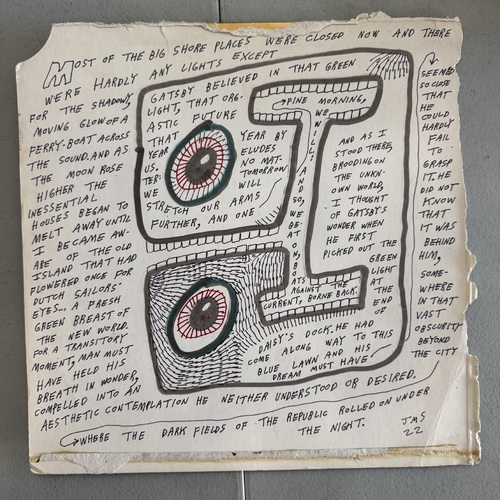 MOST OF THE BIG SHORE PLACES WERE CLOSED NOW AND THERE
WERE HARDLY ANY LIGHTS EXCEPT
FOR THE SHADOWY,
MOVING GLOW OF A
FERRY-BOAT ACROSS
THE SOUND. AND AS
THE MOON ROSE
HIGHER THE
INESSENTIAL
HOUSES BEGAN TO
MELT AWAY UNTIL
I BECAME AW-
ARE OF THE OLD
ISLAND THAT HAD
FLOWERED ONCE FOR
DUTCH SAILORS'
EYES... A FRESH
GREEN BREAST OF
THE NEW WORLD.
FOR A TRANSITORY
MOMENT, MAN MUST
HAVE HELD HIS
BREATH IN WONDER,
COMPELLED INTO AN
AESTHETIC CONTEMPLATION HE NEITHER UNDERSTOOD OR DESIRED.
AND AS I
STOOD THERE,
BROODING ON
THE UNKN-
OWN WORLD,
I THOUGHT
OF GATSBY'S
WONDER WHEN
HE FIRST
PICKED OUT THE
GREEN
LIGHT
AT THE
END
OF
DAISY'S DOCK. HE HAD
COME ALONG WAY TO THIS
BLUE LAWN AND HIS
DREAM MUST HAVE
SEEMED
SO CLOSE
THAT
HE
COULD
HARDLY
FAIL
TO
GRASP
IT. HE
DID NOT
KNOW
THAT
IT WAS
BEHIND
HIM,
SOME-
WHERE
IN THAT
VAST
OBSCURITY
BEYOND
THE CITY
WHERE THE DARK FIELDS OF THE REPUBLIC ROLLED ON UNDER
THE NIGHT.
GATSBY BELIEVED IN THAT GREEN
LIGHT, THAT ORG-
ASTIC FUTURE
THAT YEAR BY
YEAR ELUDES
US. NO MAT-
TER- TOMORROW
WE WILL
STRETCH OUR ARMS
FURTHER, AND ONE
FINE MORNING,
WE WILL: AND SO, WE BE-
ATS AGAINST THE
CURRENT, BORNE BACK.
JMS
22